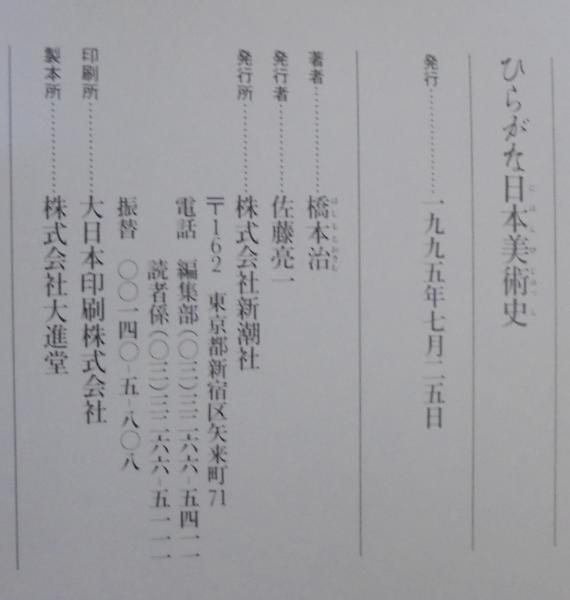 ひらがな日本美術史
発行……………一九九五年七月二五日
著者……………橋本治
発行者…………佐藤亮一
発行所…………株式会社新潮社
〒162 東京都新宿区矢来町71
電話 編集部(〇三)三二六六-五四一一
読者係(〇三)三二六六-五一一一
振替 〇〇一四〇-五-八〇八
印刷所…………大日本印刷株式会社
製本所…………株式会社大進堂